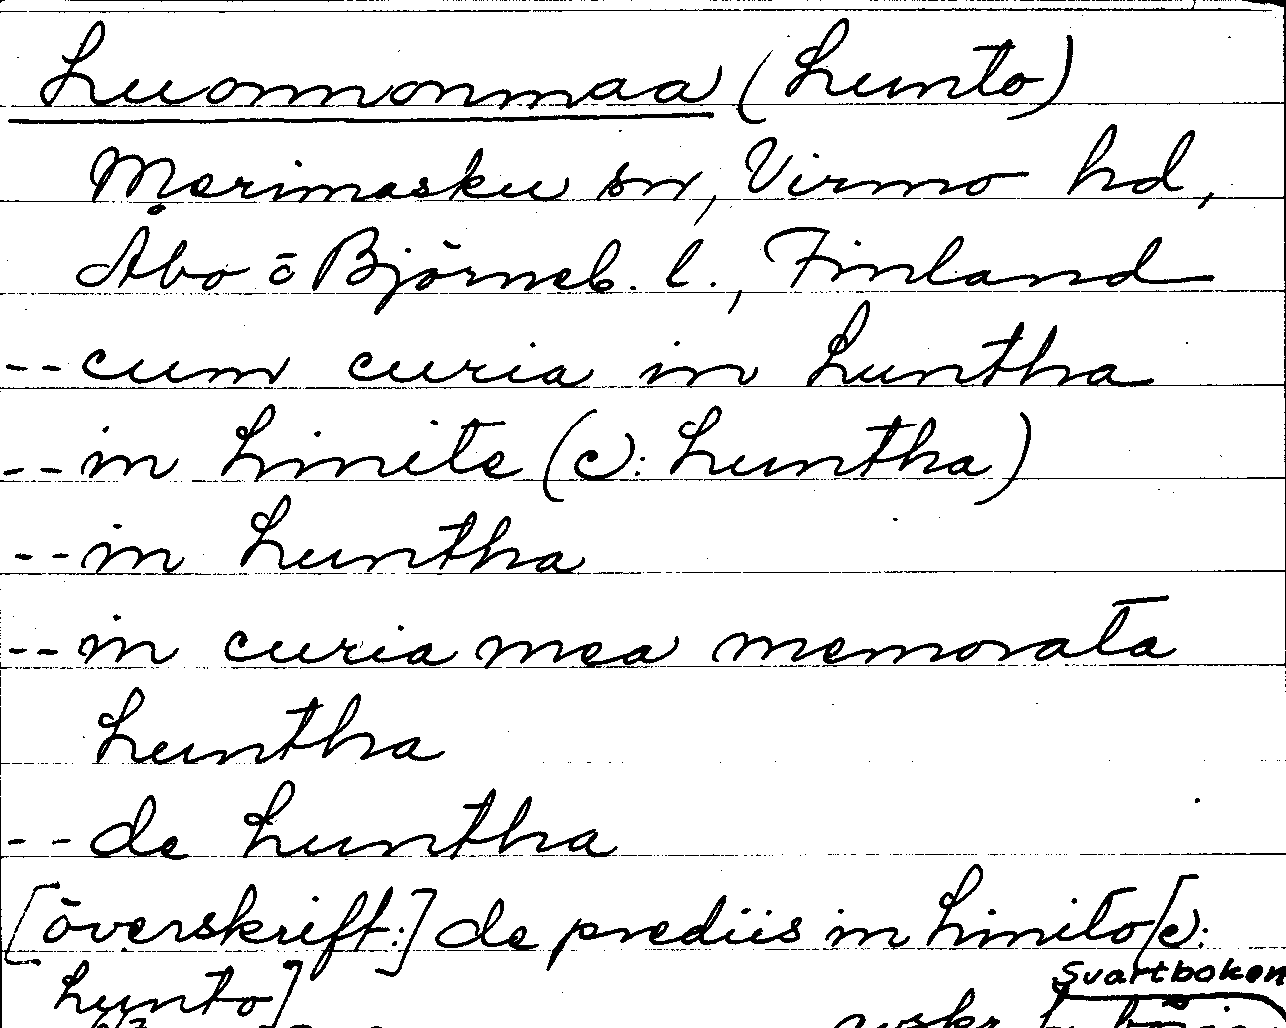 Luonnonmaa (Lunto)
Merimasku sn, Virmo hd,
Åbo o Björneb. l., Finland
--cum curia in Luntha
--in Liniete (ɔ: Luntha)
--in Luntha
--in curia mea memorata
Luntha
--de Luntha
[överskrift:] de prediis in Linito [ɔ:
Lunto]
Svartboken